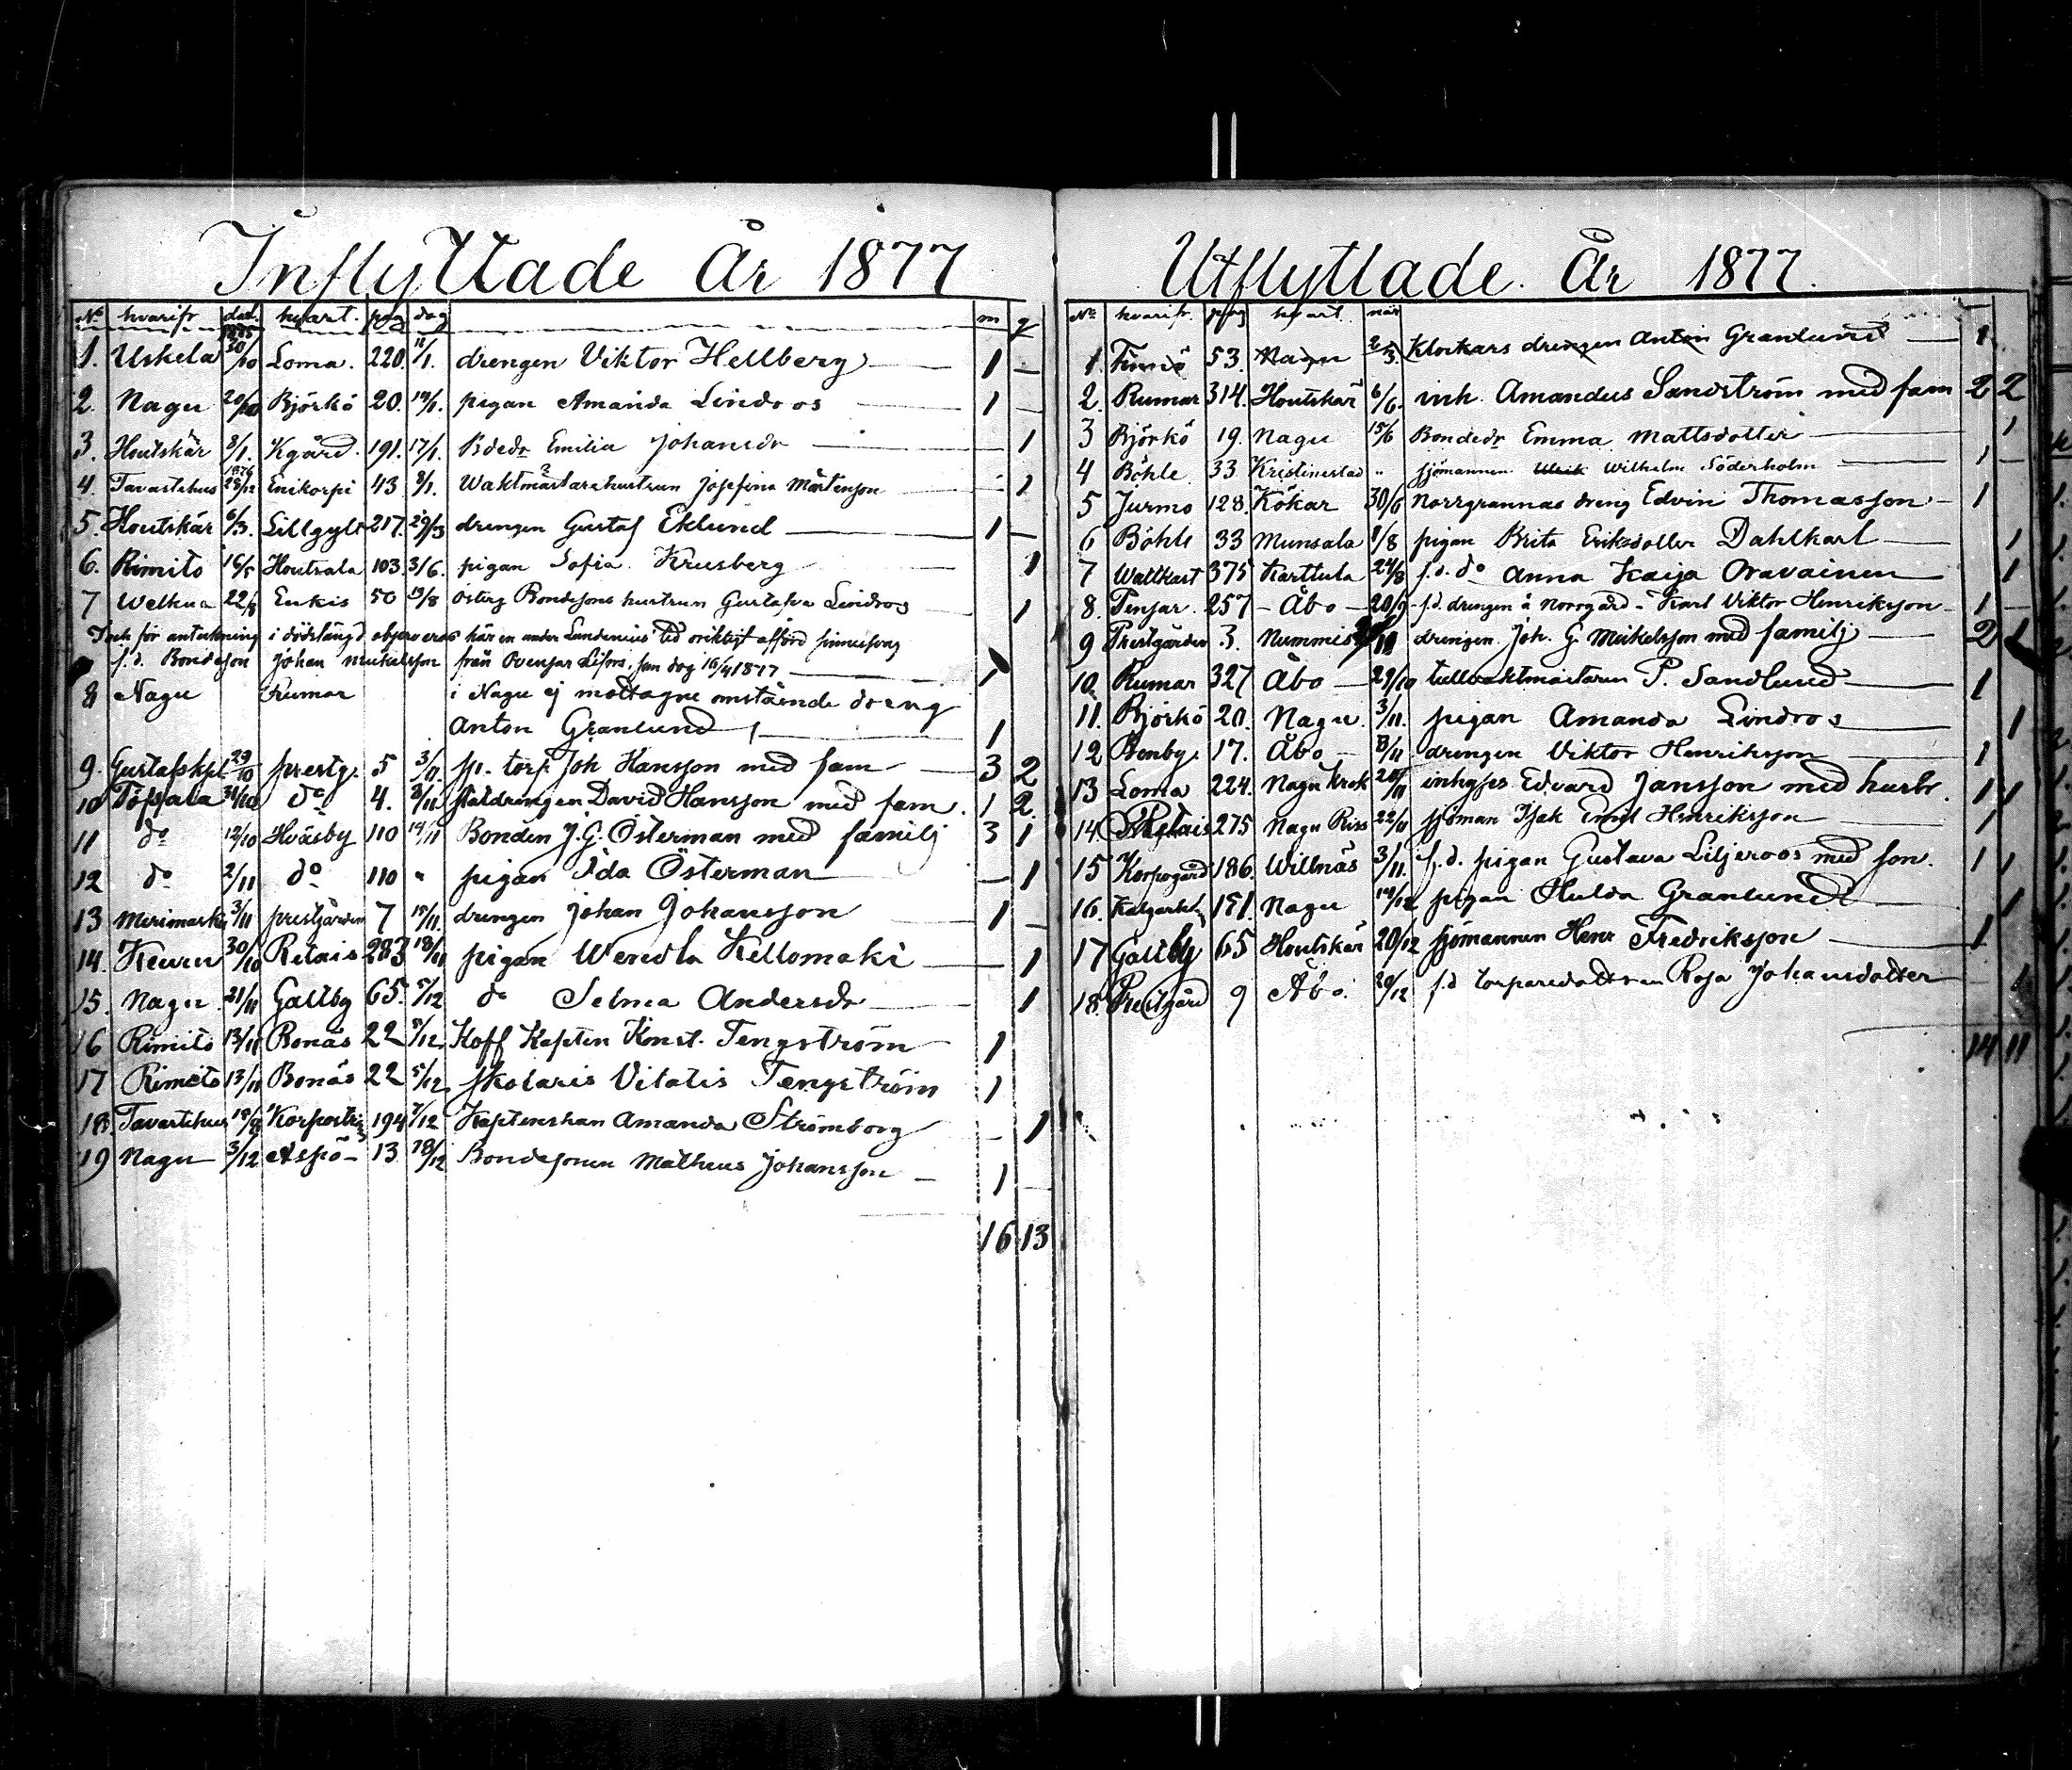 Inflyttade År 1877
No hvarifr dat. hvart. pag dag m q
1875
1. Uskela 30/10 Loma. 220. 11/1. drengen Viktor Hellberg 1 —
2. Nagu 20/10 Björkö 20. 14/1. pigan Amanda Lindroos 1
3. Houtskär 8/1. Kgård. 191. 17/1. Bdedr Emilia Johansdr 1
1876
4. Tavastehus 28/12 Enikorpi 43 8/1. Waktmästarehustrun Josefina Mårtenson 1
5. Houtskär 6/3. Lillgylt 217. 29/03 drengen Gustaf Eklund 1 —
6. Rimito 16/5 Houtsala 103. 3/6. pigan Sofia Krusberg 1
7 Welkua 22/8 Enkis 50 19/8 Österg Bondesons hustrun Gustafva Lindroos 1
f.d. Bondeson Johan Mickelsson från Ovensar Lifors. som dog 16/4 1877 1
8 Nagu Rumar i Nagu ej mottagne omstående dreng
Anton Granlund 1
9. Gustafskpl 29/10 prestg. 5 3/11. torp Joh Hansson med fam 3 2
10 Töfsala 31/10 do 4. 3/11 statdrengen David Hansson med fam. 1 2.
11 do 12/10 Hväsby 110 14/11 Bonden J. G. Österman med familj 3 1
12 do 2/11 do 110 " pigan Ida Österman — 1
13 Merimasku 3/11 prestgården 7 15/11. drengen Johan Johansson 1 —
14. Keuru 30/10 Retais 283 18/11 pigan Wendla Kellomäki — 1
15. Nagu 21/11 Galtby 65. 5/12 do Selma Andersdr 1
16 Rimito 13/11 Bonäs 22 5/12. Koff Kapten Konst. Tengström 1
17 Rimito 13/11 Bonäs 22 5/12 skolaris Vitalis Tengström 1
18. Tavastehus 18/8 194 7/12 Kaptenskan Amanda Strömborg — 1
19 Nagu 3/12 Aspö 13 18/12 Bondesonen Matheus Johansson — 1 —
16 13
Utflyttade. År 1877.
No hvarifr. pag hvart när
1. Finnö 53. Nagu 2/3. Klockars drengen Anton Granlund 1
2. Rumar 314. Houtskär 6/6. inh. Amandus Sandström med fam 2 2
3 Björkö 19. Nagu 15/6 Bondedr Emma Mattsdotter 1
4 Böhle 33 Kristinestad " sjömannen Ulrik Wilhelm Söderholm 1 —
5 Jurmo 128. Kökar 30/6 Norrgrannas dreng Edvin Thomasson 1
6 Böhle 33 Munsala 8/8 pigan Brita Eriksdotter Dahlkarl 1
7 Wattkast 375 Karttula 24/8 f.d. do Anna Kaija Oravainen 1
8. Pensar. 257 — Åbo — 20/9 f.d. drengen å Norrgård Karl Viktor Henriksson 1 —
9 Prestgården 3. Nummis drengen Joh. G. Mickelsson med familj 2 1
10. Rumar 327 Åbo — 29/10 tullvaktmästaren P. Sandlund 1
11. Björkö 20. Nagu. 3/11. pigan Amanda Lindros 1
12 Benby. 17. Åbo — 8/11 drengen Viktor Henriksson 1
13 Loma 224. Nagu Krok 20/11 inhyses Edvard Jansson med hustr. 1 1
14. Retais 275 Nagu Riss 22/11 sjöman Isak Emil Henriksson 1
15 Korpogård 186. Willnäs 3/11. f.d. pigan Gustava Liljeroos med son. 1 1
16. 191. Nagu 14/12 pigan Hulda Granlund 1
17 Galtby 65 Houtskär 20/12 sjömannen Henr Fredriksson 1
18. Prestgård 9 Åbo. 20/12 f.d torparedottren Rosa Johansdotter 1
14 11